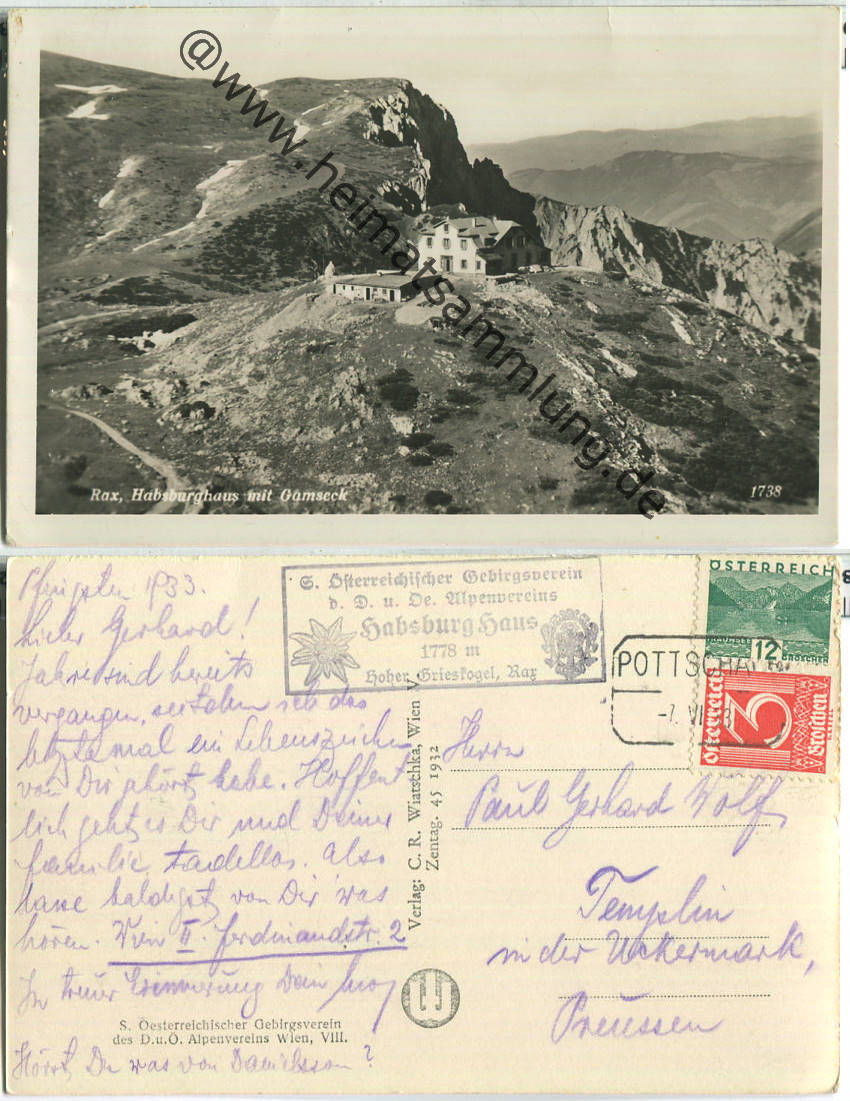 @www.heimatsammlung.de
Rax, Habsburghaus mit Gamseck
1738
Pfingsten 1933.
Lieber Gerhard!
Jahre sind bereits
vergangen, seitdem ich das
letzte mal ein Lebenszeichen
von Dir gehört habe. Hoffent
lich geht es Dir und Deiner
Familie tadellos. Also
lasse baldigst von Dir was
hören. Wien II. Ferdinandstr. 2
In treuer Erinnerung Dein
Hörst Du was von Danielsson?
S. Oesterreichischer Gebirgsverein
des D.u.Ö. Alpenvereins Wien, VIII.
S. Österreichischer Gebirgsverein
d. D. u. Oe. Alpenvereins
Habsburg Haus
1778 m
Hoher Grieskogel, Rax
Verlag: C. R. Wiatschka, Wien V
Zentag. 45 1932
ÖSTERREICH
12
GROSCHEN
POTTSCHA
-7. VI
Österreich
3
Groschen
Herrn
Paul Gerhard Wolf,
Templin
in der Uckermark,
Preussen